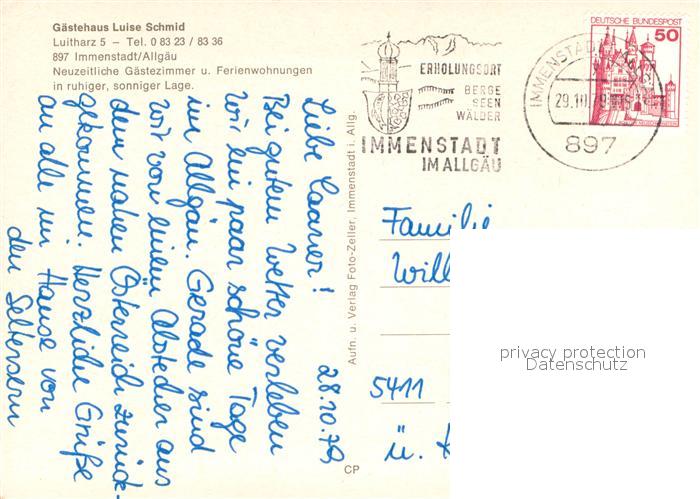 Gästehaus Luise Schmid
Luitharz 5 – Tel. 0 83 23 / 83 36
897 Immenstadt/Allgäu
Neuzeitliche Gästezimmer u. Ferienwohnungen
in ruhiger, sonniger Lage.
28.10.79
Liebe
Bei gutem Wetter verleben
wir ein paar schöne Tage
im Allgäu. Gerade sind
wir von einem Abstecher aus
dem nahen Österreich zurück-
gekommen. Herzliche Grüße
an alle im Hause von
den
Aufn. u. Verlag Foto-Zeller, Immenstadt i. Allg.
CP
ERHOLUNGSORT
BERGE
SEEN
WÄLDER
IMMENSTADT
IM ALLGÄU
IMMENSTADT
29.10.79
897
DEUTSCHE BUNDESPOST
50
Familie
Will
5411
ü.
privacy protection
Datenschutz